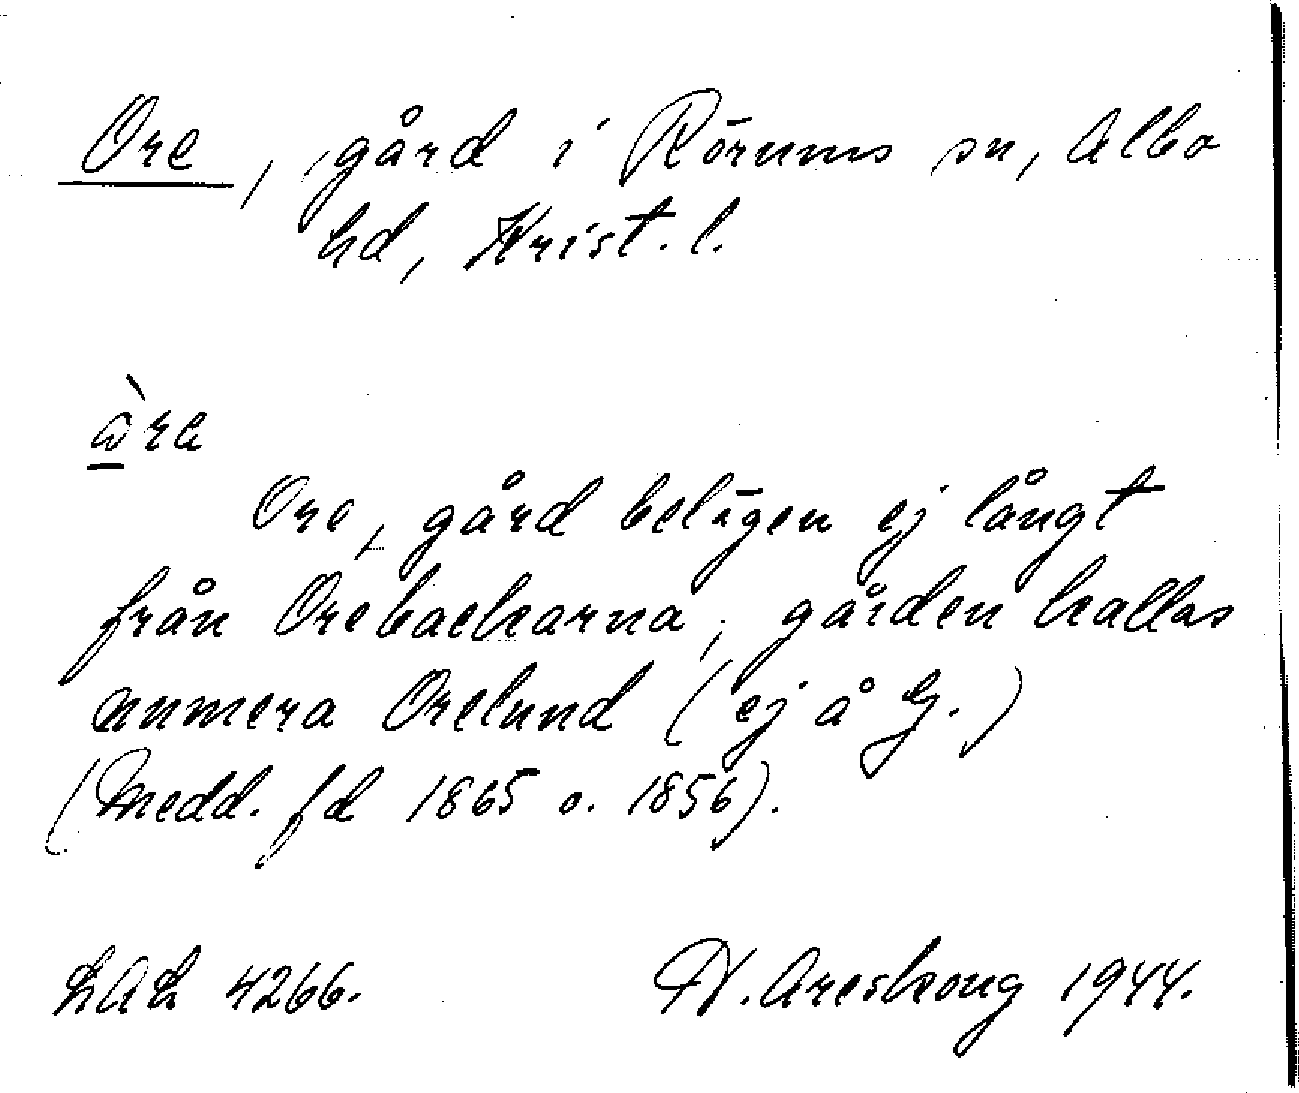 Ore, gård i Rörums sn, Albo
hd, Krist. l.
Ore, gård belägen ej långt
från Orebackarna, gården kallas
numera Orelund (ej å G.)
(Medd. fd 1865 o. 1856).
LAL 4266. N. Areskoug 1944.